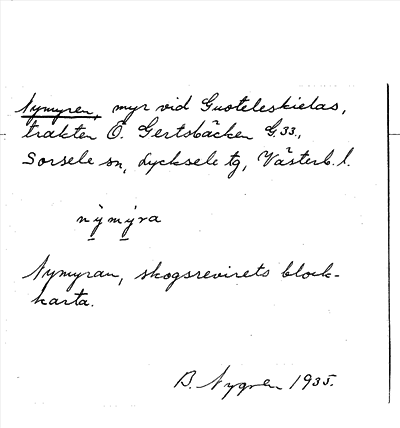 Nymyren, myr vid Guoteleskielas,
trakten Ö. Gertsbäcken G. 33.,
Sorsele sn, Lycksele tg, Västerb. l.
nỳmýra
Nymyran, skogsrevirets block-
karta.
B. Nygren 1935.